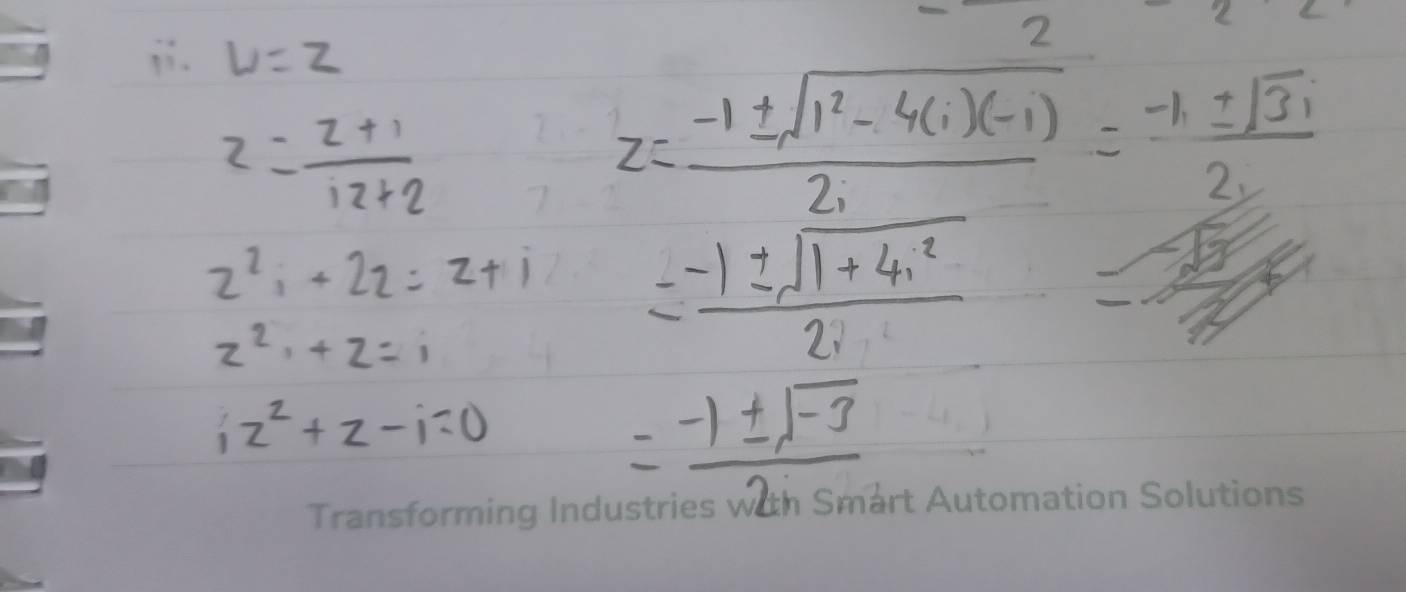 ii. w = z
z = \frac{z + i}{iz + 2}
z²i + 2z = z + i
z²i + z = i
iz² + z - i = 0
z = \frac{-1 ± \sqrt{1² - 4(i)(-i)}}{2i} = \frac{-1 ± \sqrt{3}i}{2i}
= \frac{-1 ± \sqrt{1 + 4i²}}{2i}
= \frac{-1 ± \sqrt{-3}}{2i}
Transforming Industries with Smart Automation Solutions